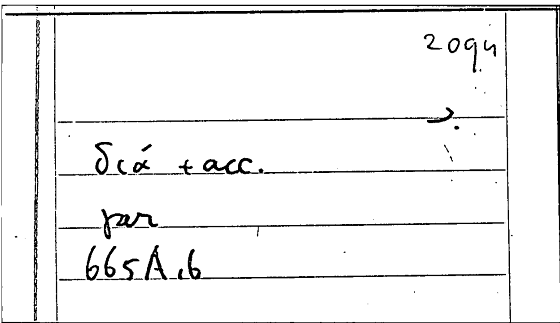 2094
διά + acc.
par
665A.6